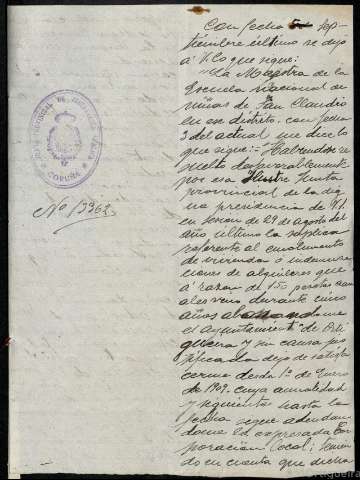 Con fecha 5 sep-
tiembre último se dijo
á V. lo que sigue:
"La Maestra de la
Escuela nacional de
niñas de San Claudio
en ese distrito, con fecha
3 del actual me dice lo
que sigue: "Habiendo re-
suelto desfavorablemente
por esa Ilustre Junta
provincial de la dig-
na presidencia de V.I.
en sesion de 29 de agosto del
año último la súplica
referente al
de vivienda o indemni-
ciones de alquileres que
á razon de 150 pesetas anu-
ales venia durante cinco
años abonandome
el ayuntamiento de Orti-
gueira y sin causa jus-
tificada dejo de satisfa-
cerme desde 1º de Enero
de 1909. cuya anualidad
y siguientes hasta la
fecha sigue adeudan-
dome la expresada Cor-
poracion local; tenien-
do en cuenta que dicha
JUNTA PROVINCIAL DE INSTRUCCIÓN PÚBLICA
CORUÑA
No. 13362